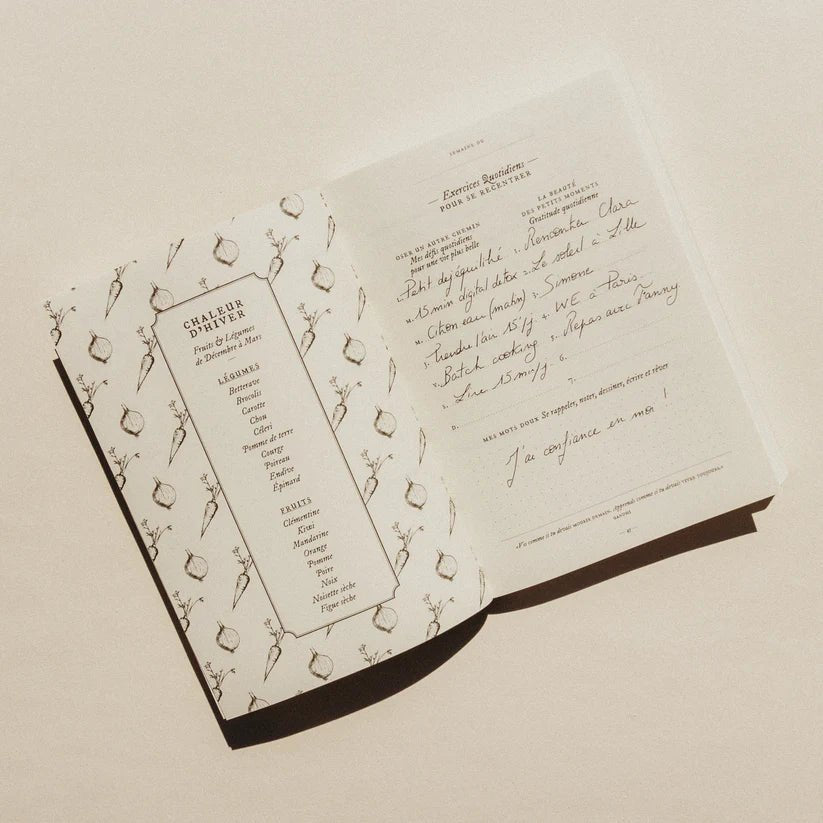 CHALEUR
D'HIVER
Fruits & Légumes
de Décembre à Mars
LÉGUMES
Betterave
Brocolis
Carotte
Chou
Céleri
Pomme de terre
Courge
Poireau
Endive
Épinard
FRUITS
Clémentine
Kiwi
Mandarine
Orange
Pomme
Poire
Noix
Noisette sèche
Figue sèche
SEMAINE DU
Exercices Quotidiens
POUR SE RECENTRER
OSER UN AUTRE CHEMIN
Mes défis quotidiens
pour une vie plus belle
L. Petit dej équilibré
M. 15 min digital detox
M. Citron eau (matin)
J. Prendre l'air 15'/j
V. Batch cooking
S. Lire 15 min/j
D.
LA BEAUTÉ
DES PETITS MOMENTS
Gratitude quotidienne
1. Rencontrer Clara
2. Le soleil à Lille
3. Simone
4. WE à Paris
5. Repas avec Fanny
6.
7.
MES MOTS DOUX Se rappeler, noter, dessiner, écrire et rêver
J'ai confiance en moi !
«Vis comme si tu devais MOURIR DEMAIN. Apprends comme si tu devais VIVRE TOUJOURS.»
GANDHI